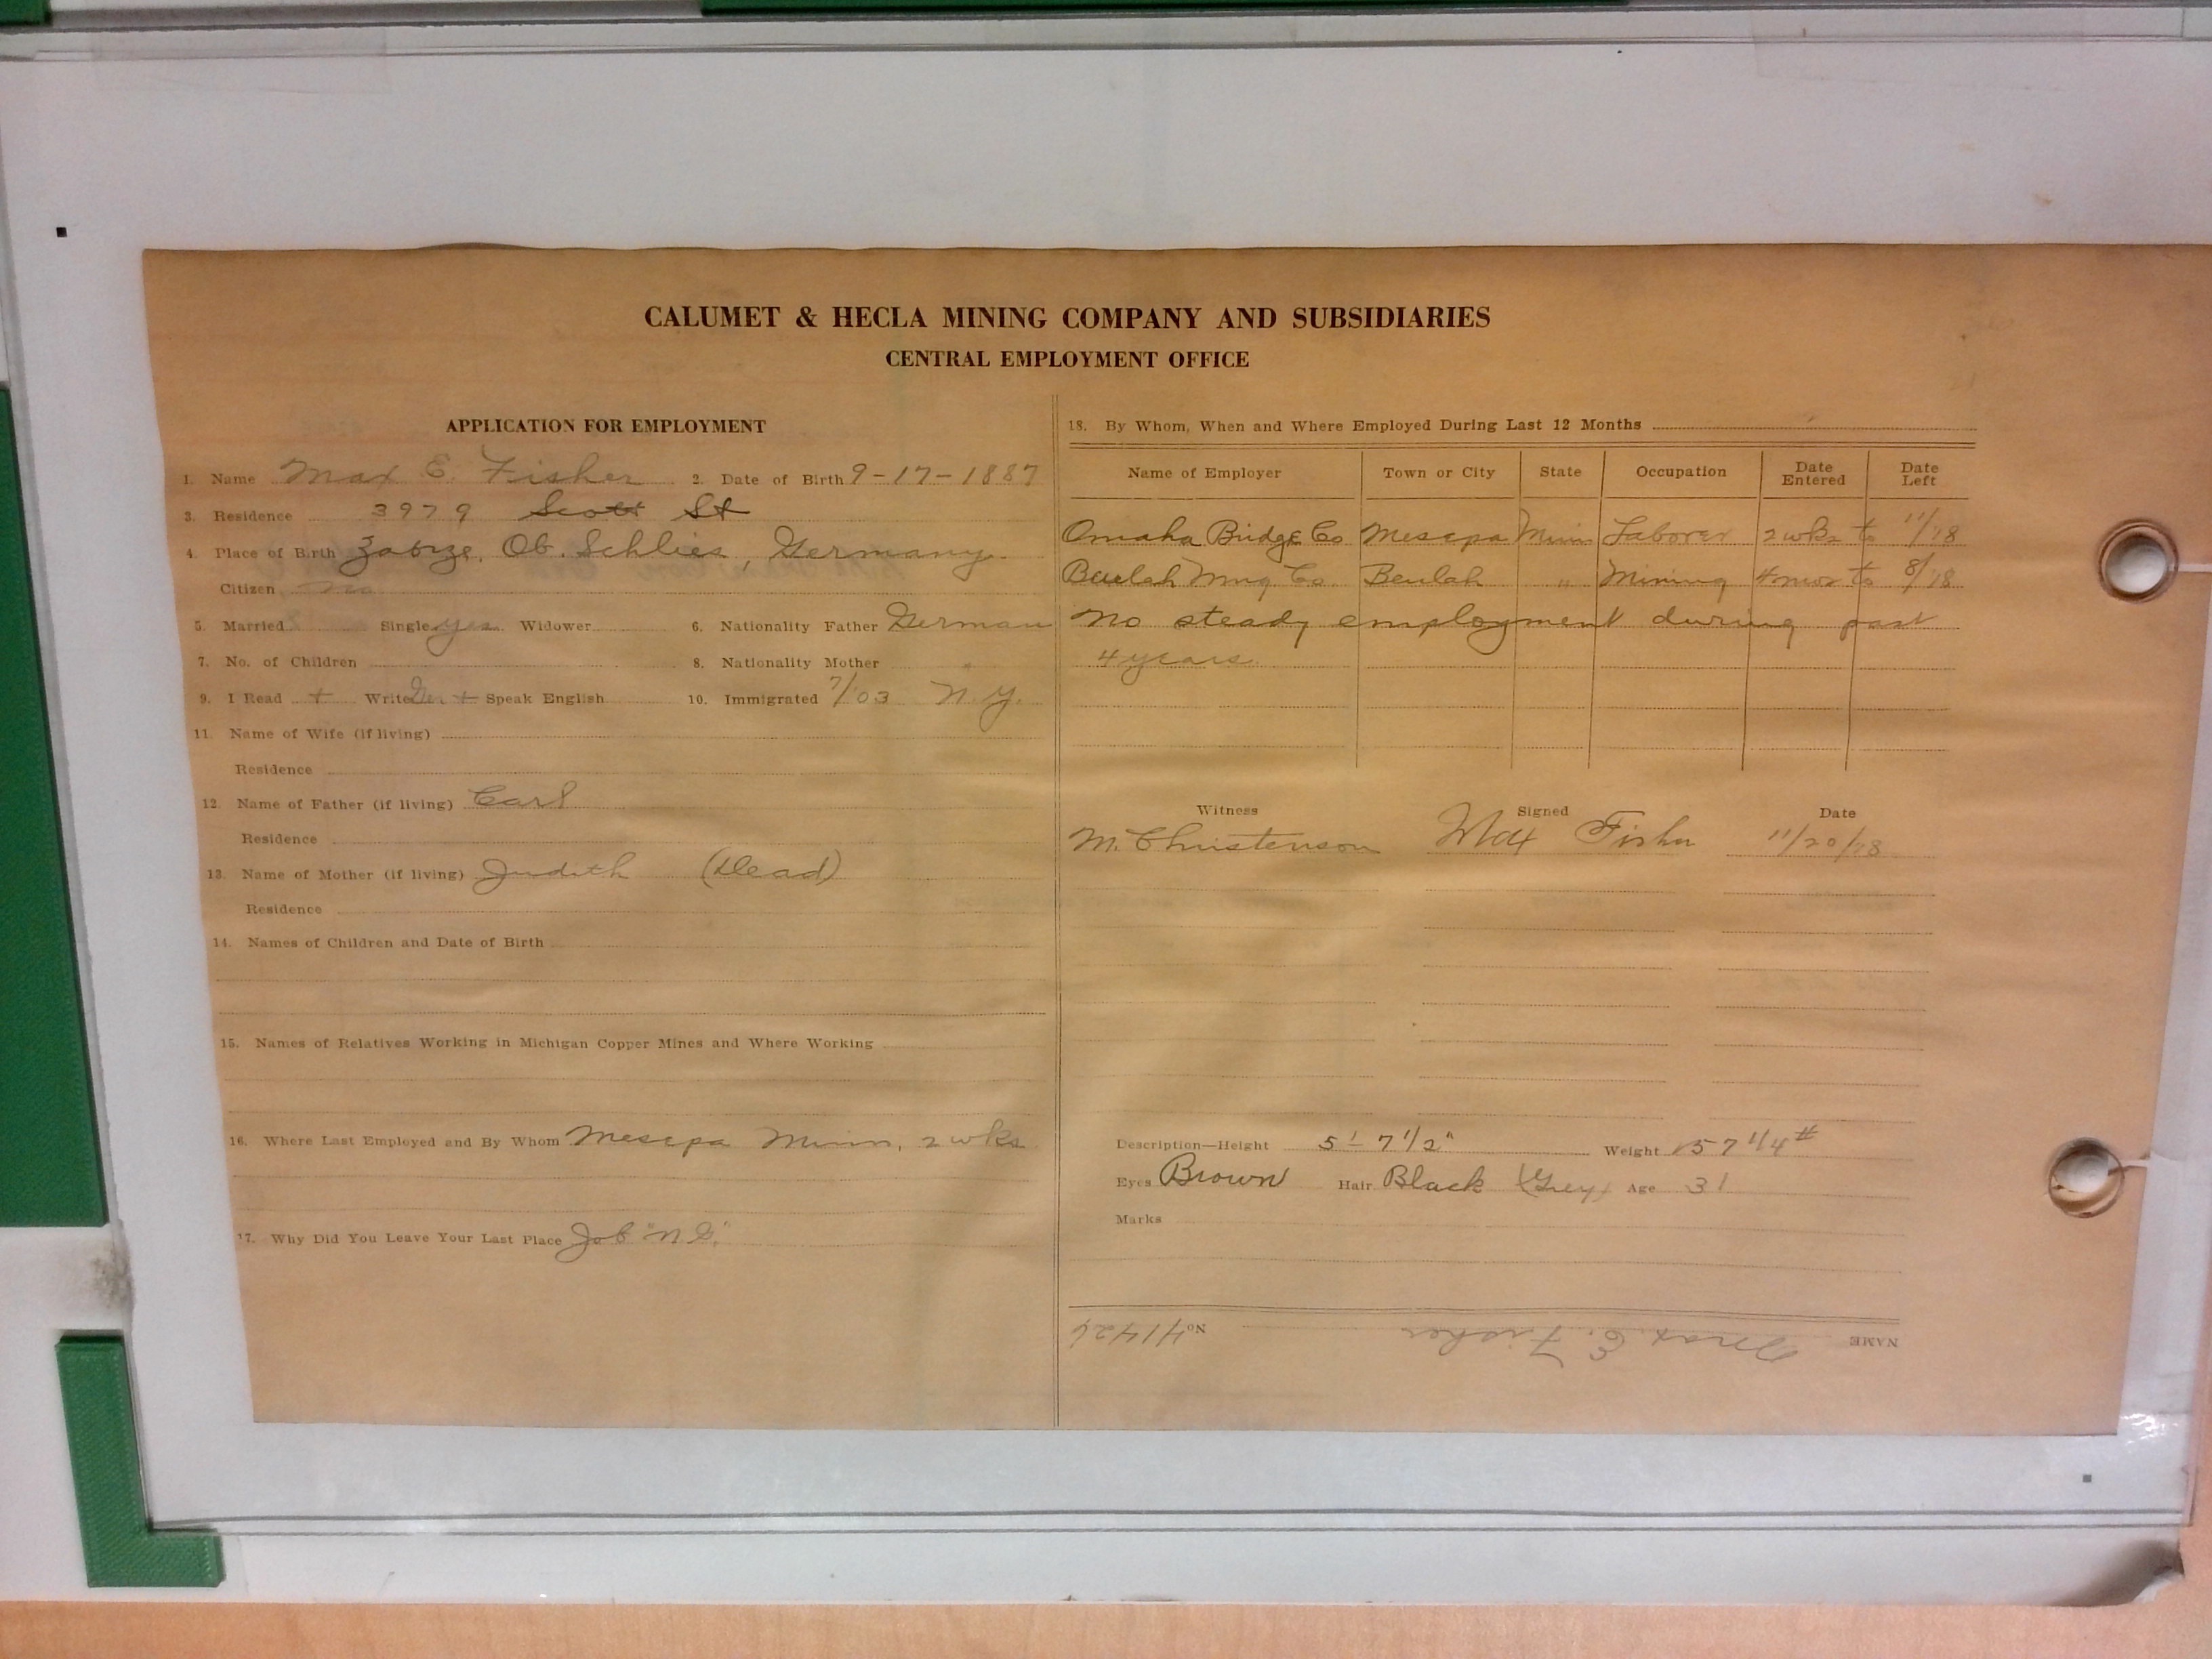 CALUMET & HECLA MINING COMPANY AND SUBSIDIARIES
CENTRAL EMPLOYMENT OFFICE
APPLICATION FOR EMPLOYMENT
1. Name Max E. Fisher 2. Date of Birth 9-17-1887
3. Residence 3979 Scott St
4. Place of Birth Zabrze, Ob. Schlies, Germany
Citizen no
5. Married Single yes Widower 6. Nationality Father German
7. No. of Children 8. Nationality Mother "
9. I Read + Write Ger + Speak English 10. Immigrated 7/03 N.Y.
11. Name of Wife (if living)
Residence
12. Name of Father (if living) Carl
Residence
13. Name of Mother (if living) Judith (Dead)
Residence
14. Names of Children and Date of Birth
15. Names of Relatives Working in Michigan Copper Mines and Where Working
16. Where Last Employed and By Whom Mesepa Minn, 2 wks
17. Why Did You Leave Your Last Place Job "N.G."
18. By Whom, When and Where Employed During Last 12 Months
Name of Employer Town or City State Occupation Date Entered Date Left
Omaha Bridge Co Mesepa Minn Laborer 2 wks to 11/18
Beulah Mng Co. Beulah " Mining 4 mos to 8/18
No steady employment during past
4 years.
Witness Signed Date
M. Christenson Max Fisher 11/20/18
Description—Height 5'-7 1/2" Weight 157 1/4 #
Eyes Brown Hair Black (Grey) Age 31
Marks
NAME Max E. Fisher No 41426